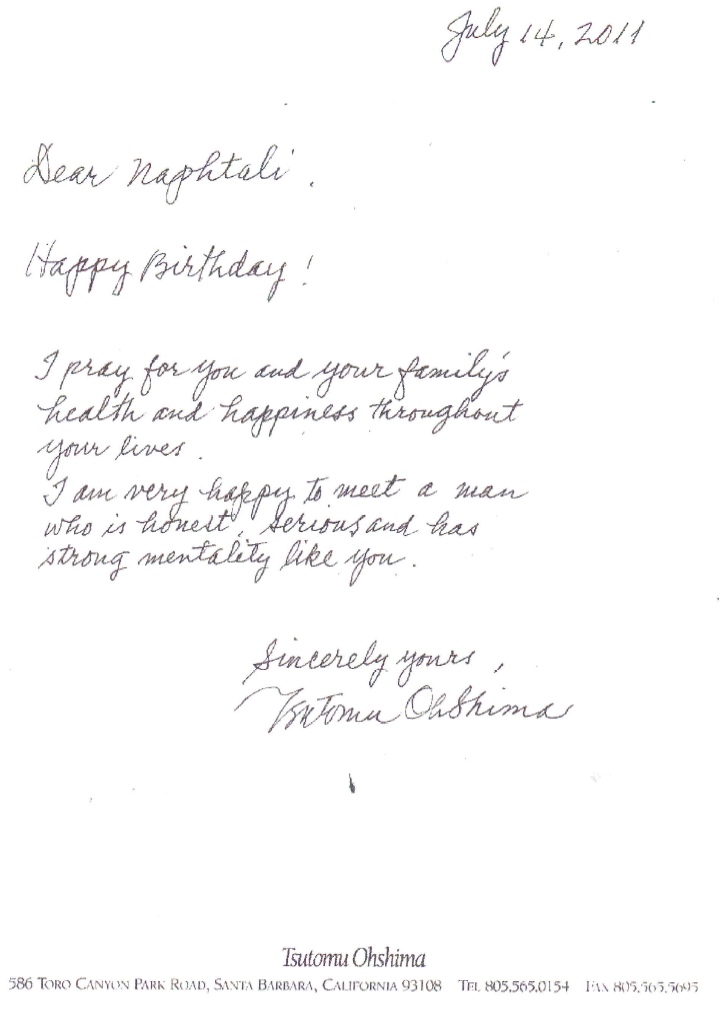 July 14, 2011
Dear Naphtali.
Happy Birthday!
I pray for you and your family's
health and happiness throughout
your lives.
I am very happy to meet a man
who is honest, serious and has
strong mentality like you.
Sincerely yours,
Tsutomu Ohshima
Tsutomu Ohshima
586 Toro Canyon Park Road, Santa Barbara, California 93108 Tel 805.565.0154 Fax 805.565.5695